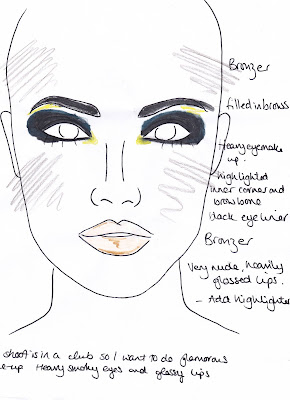 Bronzer
filled in brows
Heavy eye make
up.
- highlighted
inner corner and
brow bone
black eye liner
Bronzer
Very nude, heavily
glossed lips.
- Add highlighter
shoot is in a club so I want to do glamorous
e-up Heavy smoky eyes and glossy lips